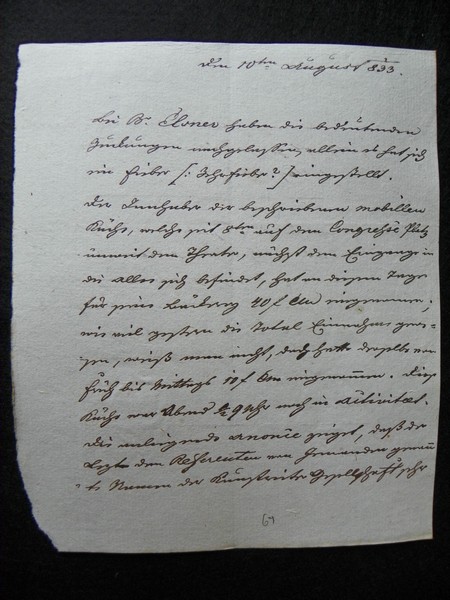 Den 10ten August 833.
Bei Br. Elsner haben die bedeutenden
Zuckungen nachgelassen, allein es hat sich
ein Fieber [: Zehrfieber? ] eingestellt.
Der Innhaber der beschriebenen mobillen
Küche, welche seit 8ten auf dem Congresse Platz
unweit dem Theater, nächst dem Eingange in
die Allee sich befindet, hat an diesem Tage
für seine Bäckerey 40 f CM eingenommen;
wie viel gestern die Total Einnahme gewe-
sen, weiß man nicht, doch hatte derselbe von
früh bis Mittags 10 f CM eingenommen. Diese
Küche war Abend ½ 9 Uhr noch in Activitaet.
Die anliegende Anonce zeiget, daß der
den Referenten von Jemanden
Namen der Kunstreiter Gesellschaft sehr
64